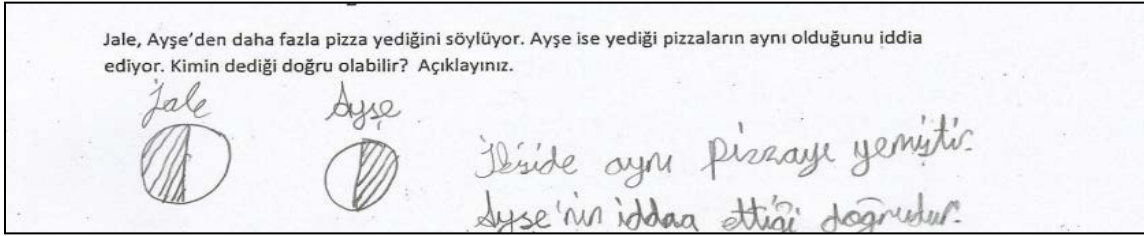 Jale, Ayşe'den daha fazla pizza yediğini söylüyor. Ayşe ise yediği pizzaların aynı olduğunu iddia
ediyor. Kimin dediği doğru olabilir? Açıklayınız.
Jale Ayşe
İkiside aynı pizzayı yemiştir.
Ayşe'nin iddaa ettiği doğrudur.